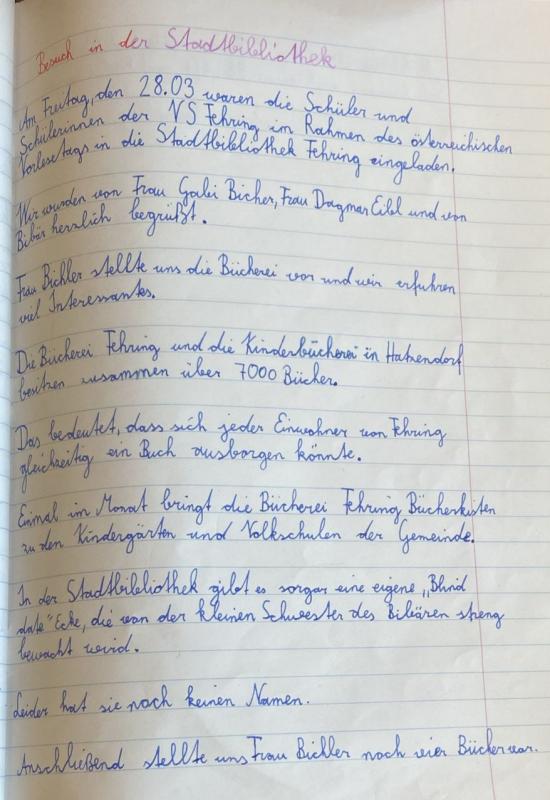 Besuch in der Stadtbibliothek
Am Freitag, den 28.03 waren die Schüler und
Schülerinnen der VS Fehring im Rahmen des österreichischen
Vorlesetags in die Stadtbibliothek Fehring eingeladen.
Wir wurden von Frau Gabi Bicher, Frau Dagmar Eibl und von
Bibär herzlich begrüßt.
Frau Bichler stellte uns die Bücherei vor und wir erfuhren
viel Interessantes.
Die Bücherei Fehring und die Kinderbücherei in Hatzendorf
besitzen zusammen über 7000 Bücher.
Das bedeutet, dass sich jeder Einwohner von Fehring
gleichzeitig ein Buch ausborgen könnte.
Einmal im Monat bringt die Bücherei Fehring Bücherkisten
zu den Kindergärten und Volkschulen der Gemeinde.
In der Stadtbibliothek gibt es sorgar eine eigene „Blind
date" Ecke, die von der kleinen Schwester des Bibären streng
bewacht wird.
Leider hat sie noch keinen Namen.
Anschließend stellte uns Frau Bichler noch vier Bücher vor.